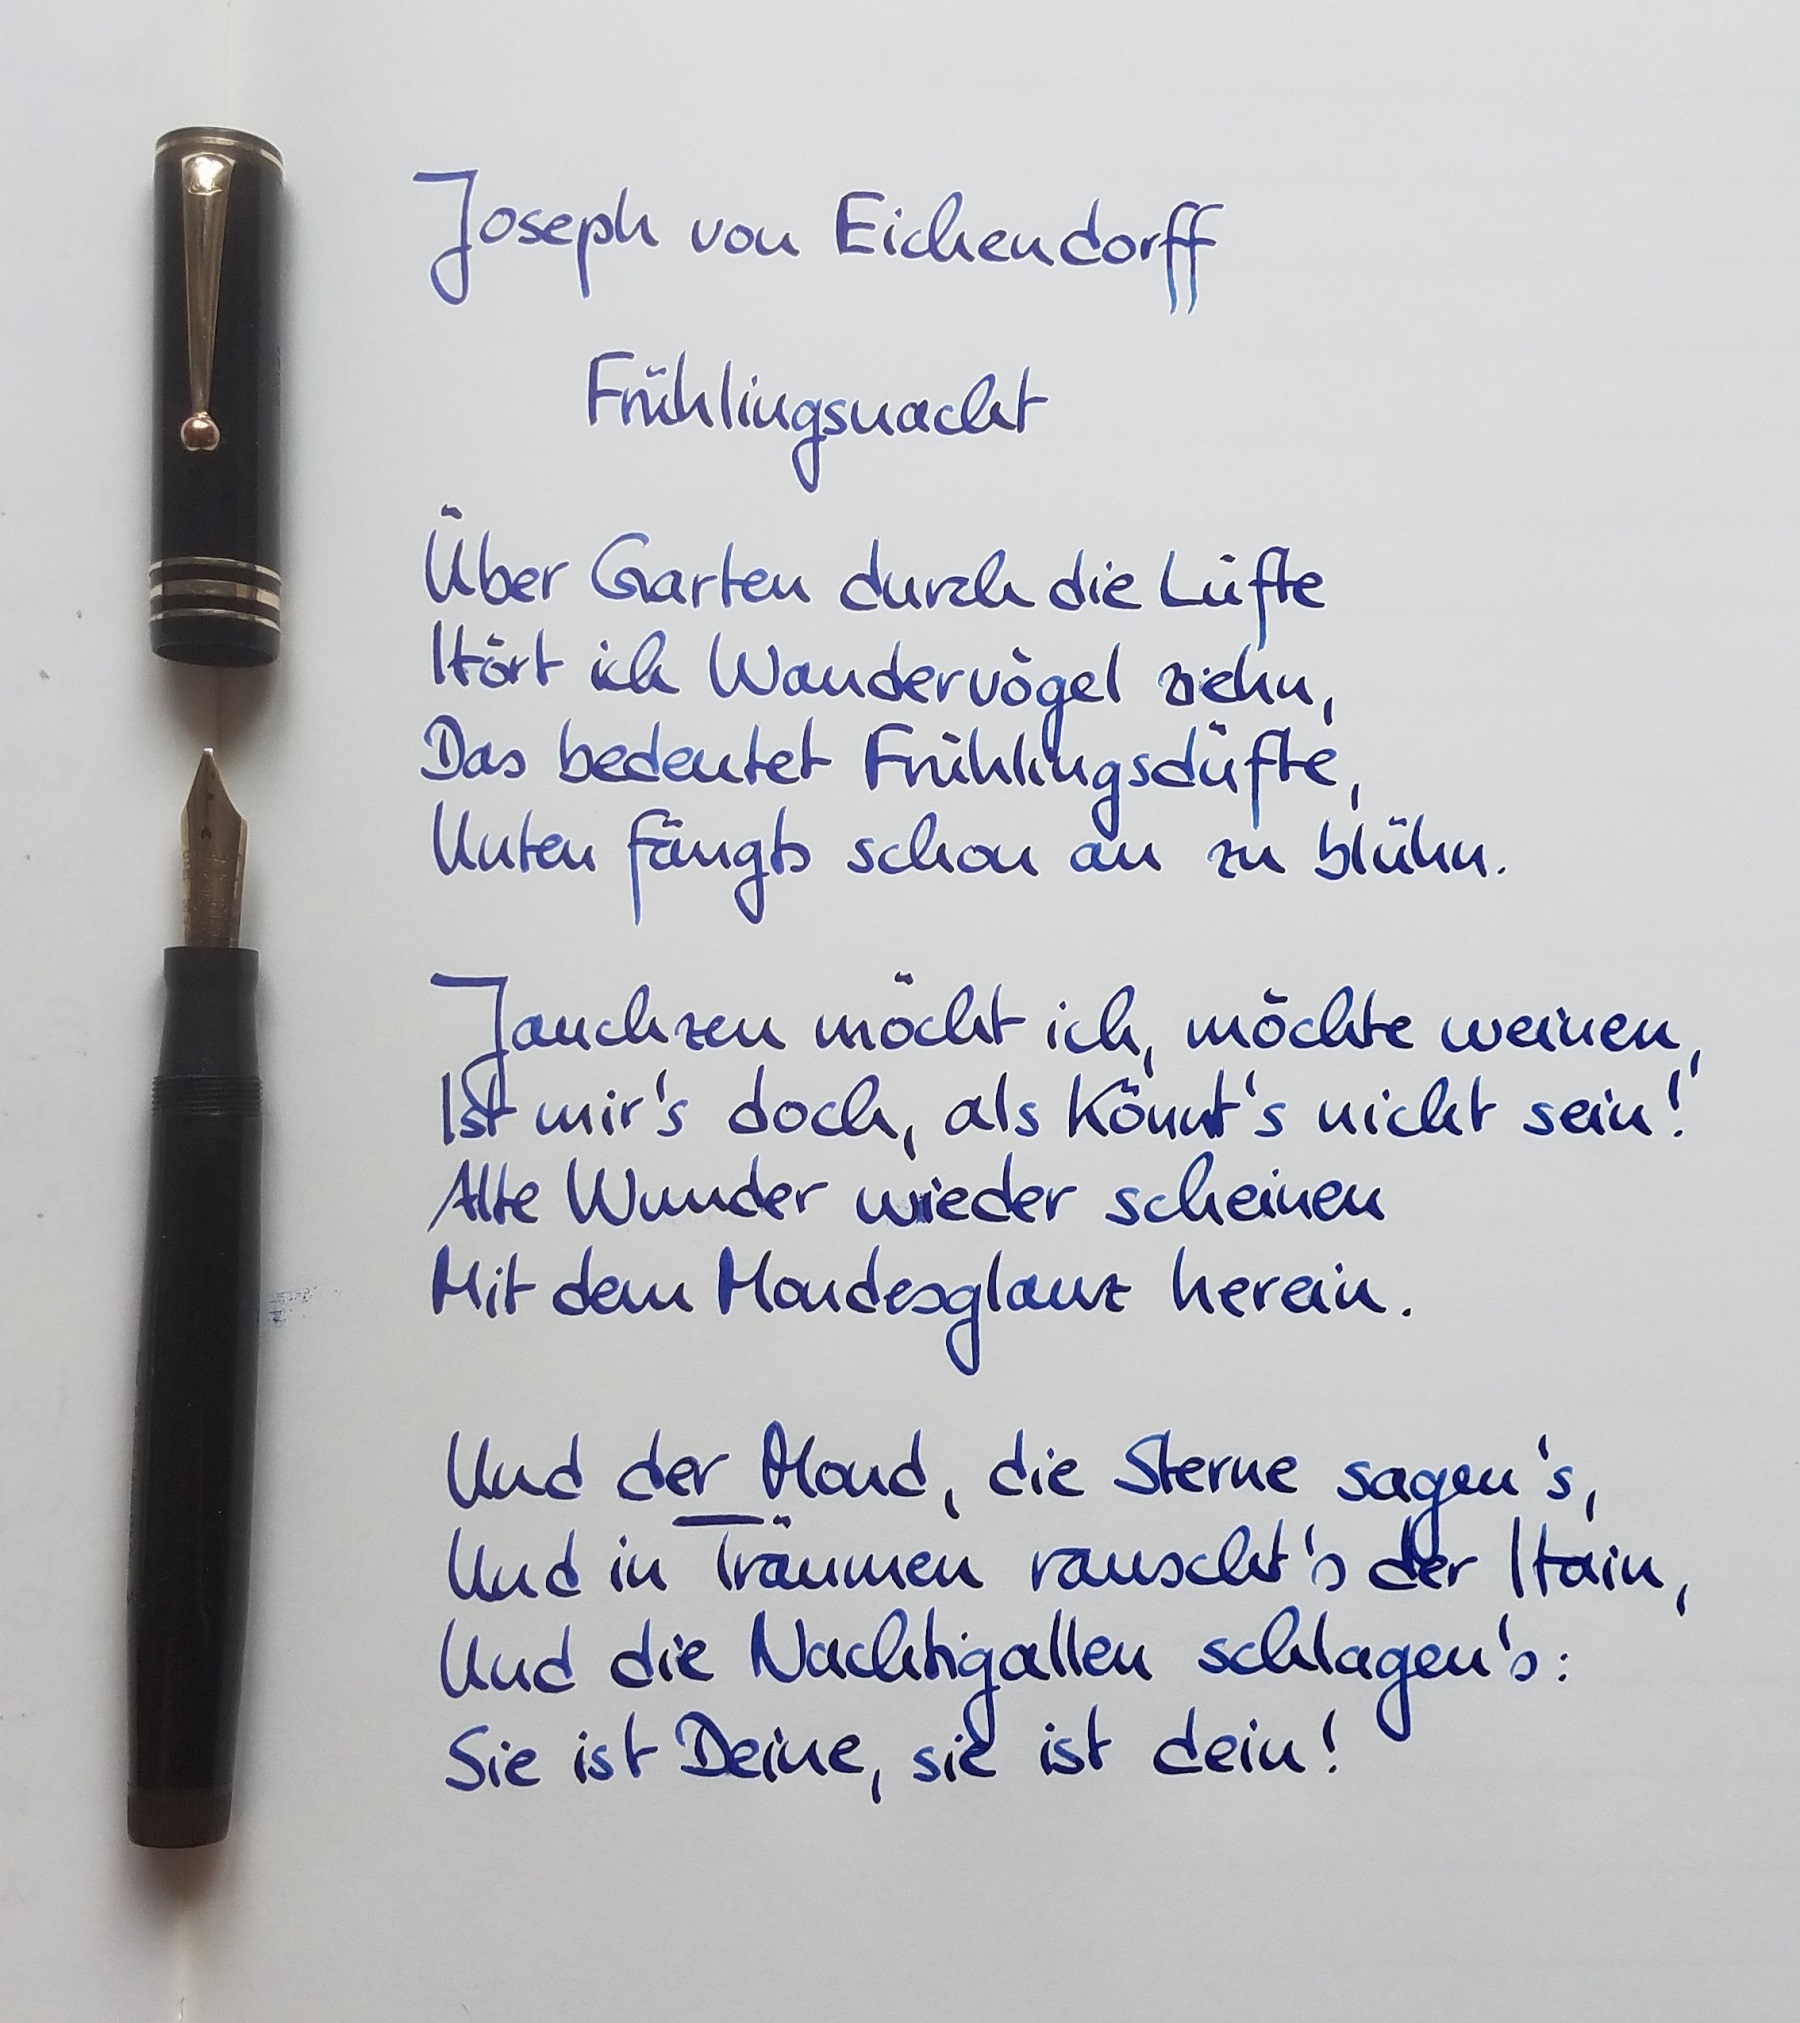 Joseph von Eichendorff
Frühlingsnacht
Über Garten durch die Lüfte
Hört ich Wandervögel ziehn,
Das bedeutet Frühlingsdüfte,
Unten fängts schon an zu blühn.
Jauchzen möcht ich, möchte weinen,
Ist mir's doch, als könnt's nicht sein!
Alte Wunder wieder scheinen
Mit dem Mondesglanz herein.
Und der Mond, die Sterne sagen's,
Und in Träumen rauscht's der Hain,
Und die Nachtigallen schlagen's:
Sie ist Deine, sie ist dein!